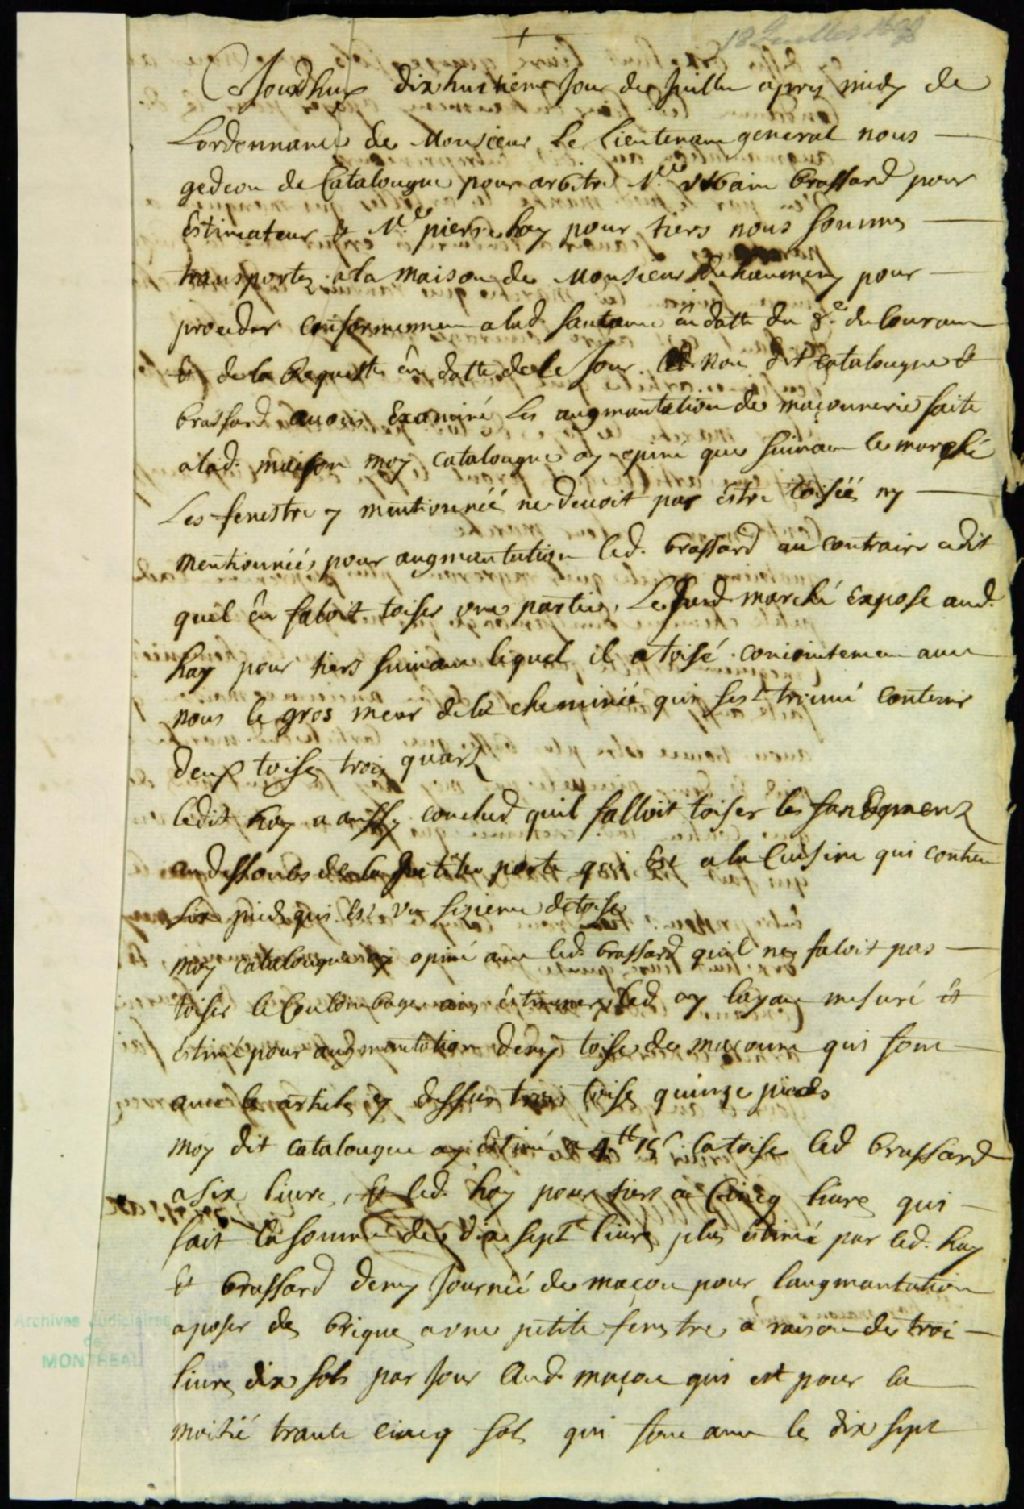 18 Juillet 16
Cejourdhuy dix huitieme jour de Juillet apres midy de
Lordonnance de Monsieur Le Lieutenant general nous
gedeon de Catalougne pour arbitre Mre Urbain brossard pour
Estimateur & Mre pierre hay pour tiers nous sommes
transportez a la maison de Monsieur pour
proceder conformement a lad. santance en datte du 8e du courant
& de la Requeste en datte de le jour nous dit Catalougne &
brossard avons Examiné les augmantation de maçonnerie faite
a lad. maison moy catalougne ay opiné que suivant le marché
Les fenestre y mentionnéé ne devoit pas estre toiséé ny
mentionnéés pour augmantation led. brossard au contraire a dit
quil en faloit toiser une partie, Le susd. marché Exposé aud.
hay pour tiers suivant lequel il a toisé conjointement avec
nous le gros meur de la cheminéé qui sest trouvé contenir
deux toises trois quart
ledit hay a aussy conclud quil falloit toiser les
au dessoubs de la petitte porte qui Est a la Cuisine qui contien
six pieds qui Est un sizieme de toise
moy catalougne ay opiné avec led. brossard quil ny faloit pas
toiser le Coulombage ains estimer led. ay layant mesuré &
estimé pour augmantation demy toise de maconne qui font
avec le article cy dessus trois toise quinze pieds
moy dit catalougne ay estimé a 4tt 15s la toise led brossard
a six livre, & led. hay pour tiers a Cincq livre qui
fait la somme de dix sept livre plus estimé par led. hay
& brossard demy Journéé de maçon pour laugmantation
a poser des brique a une petite fenestre a raison de troi
livre dix sols par jour aud. maçon qui est pour la
moitié trante cincq sols qui font avec les dix sept
Archives Judiciaires
de
MONTREAL